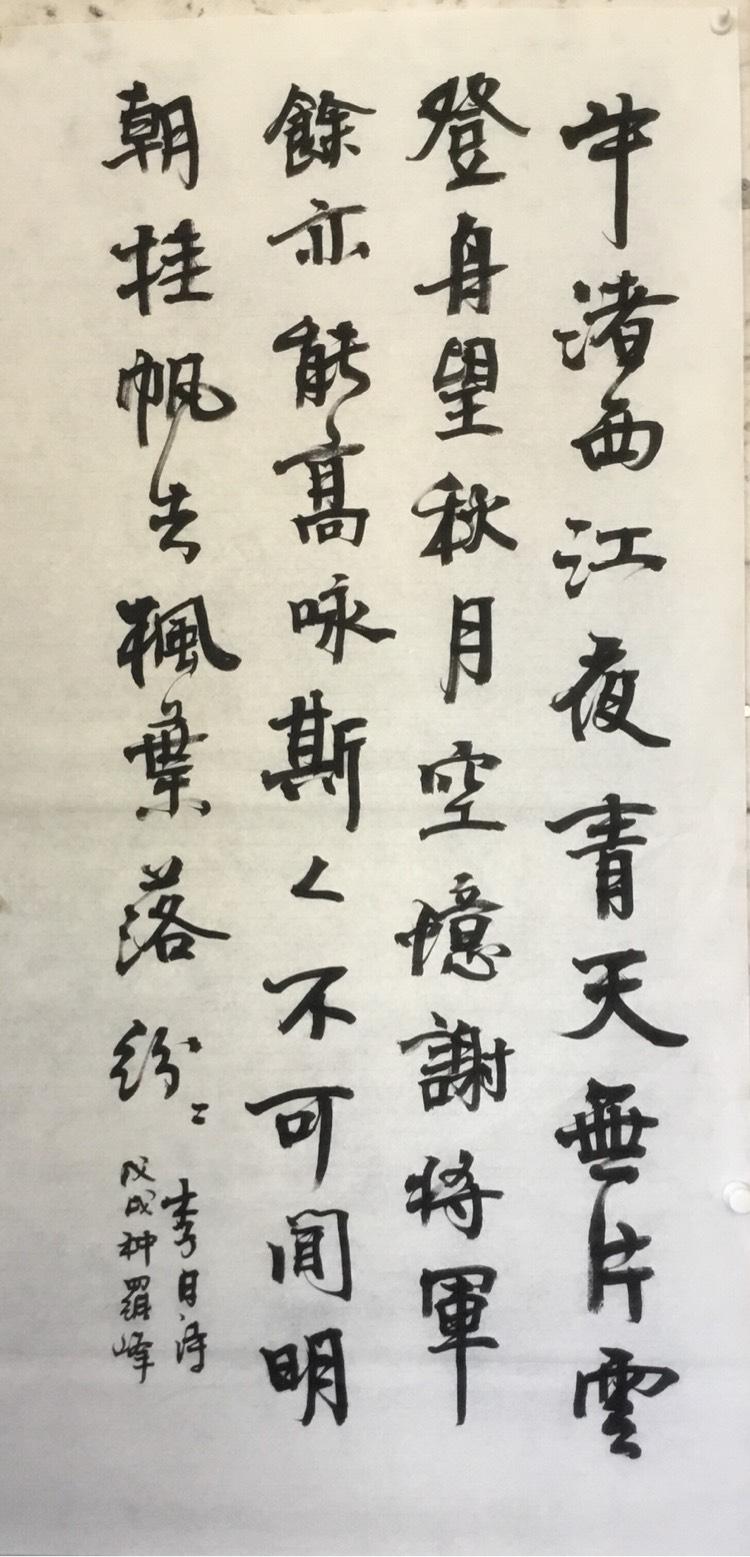 牛渚西江夜青天無片雲
登舟望秋月空憶謝將軍
餘亦能高咏斯人不可聞明
朝挂帆去楓葉落紛〻
李白詩
戊戌 羅峰